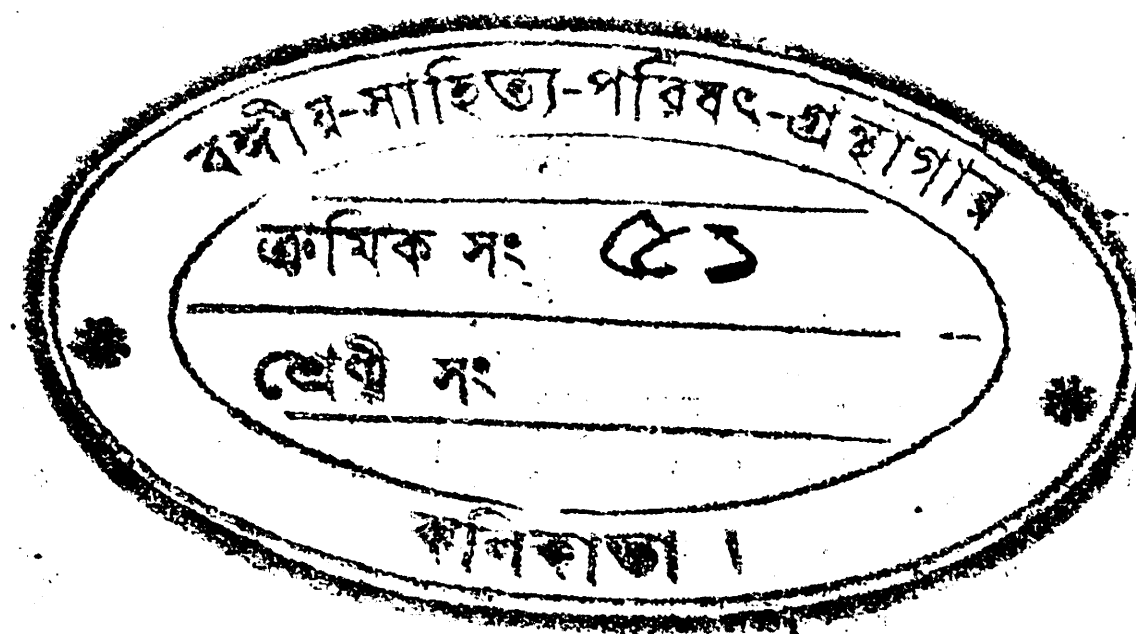 বঙ্গীয়-সাহিত্য-পরিষৎ-গ্রন্থাগার
ক্রমিক সং ৫১
শ্রেণী সং
কলিকাতা ।